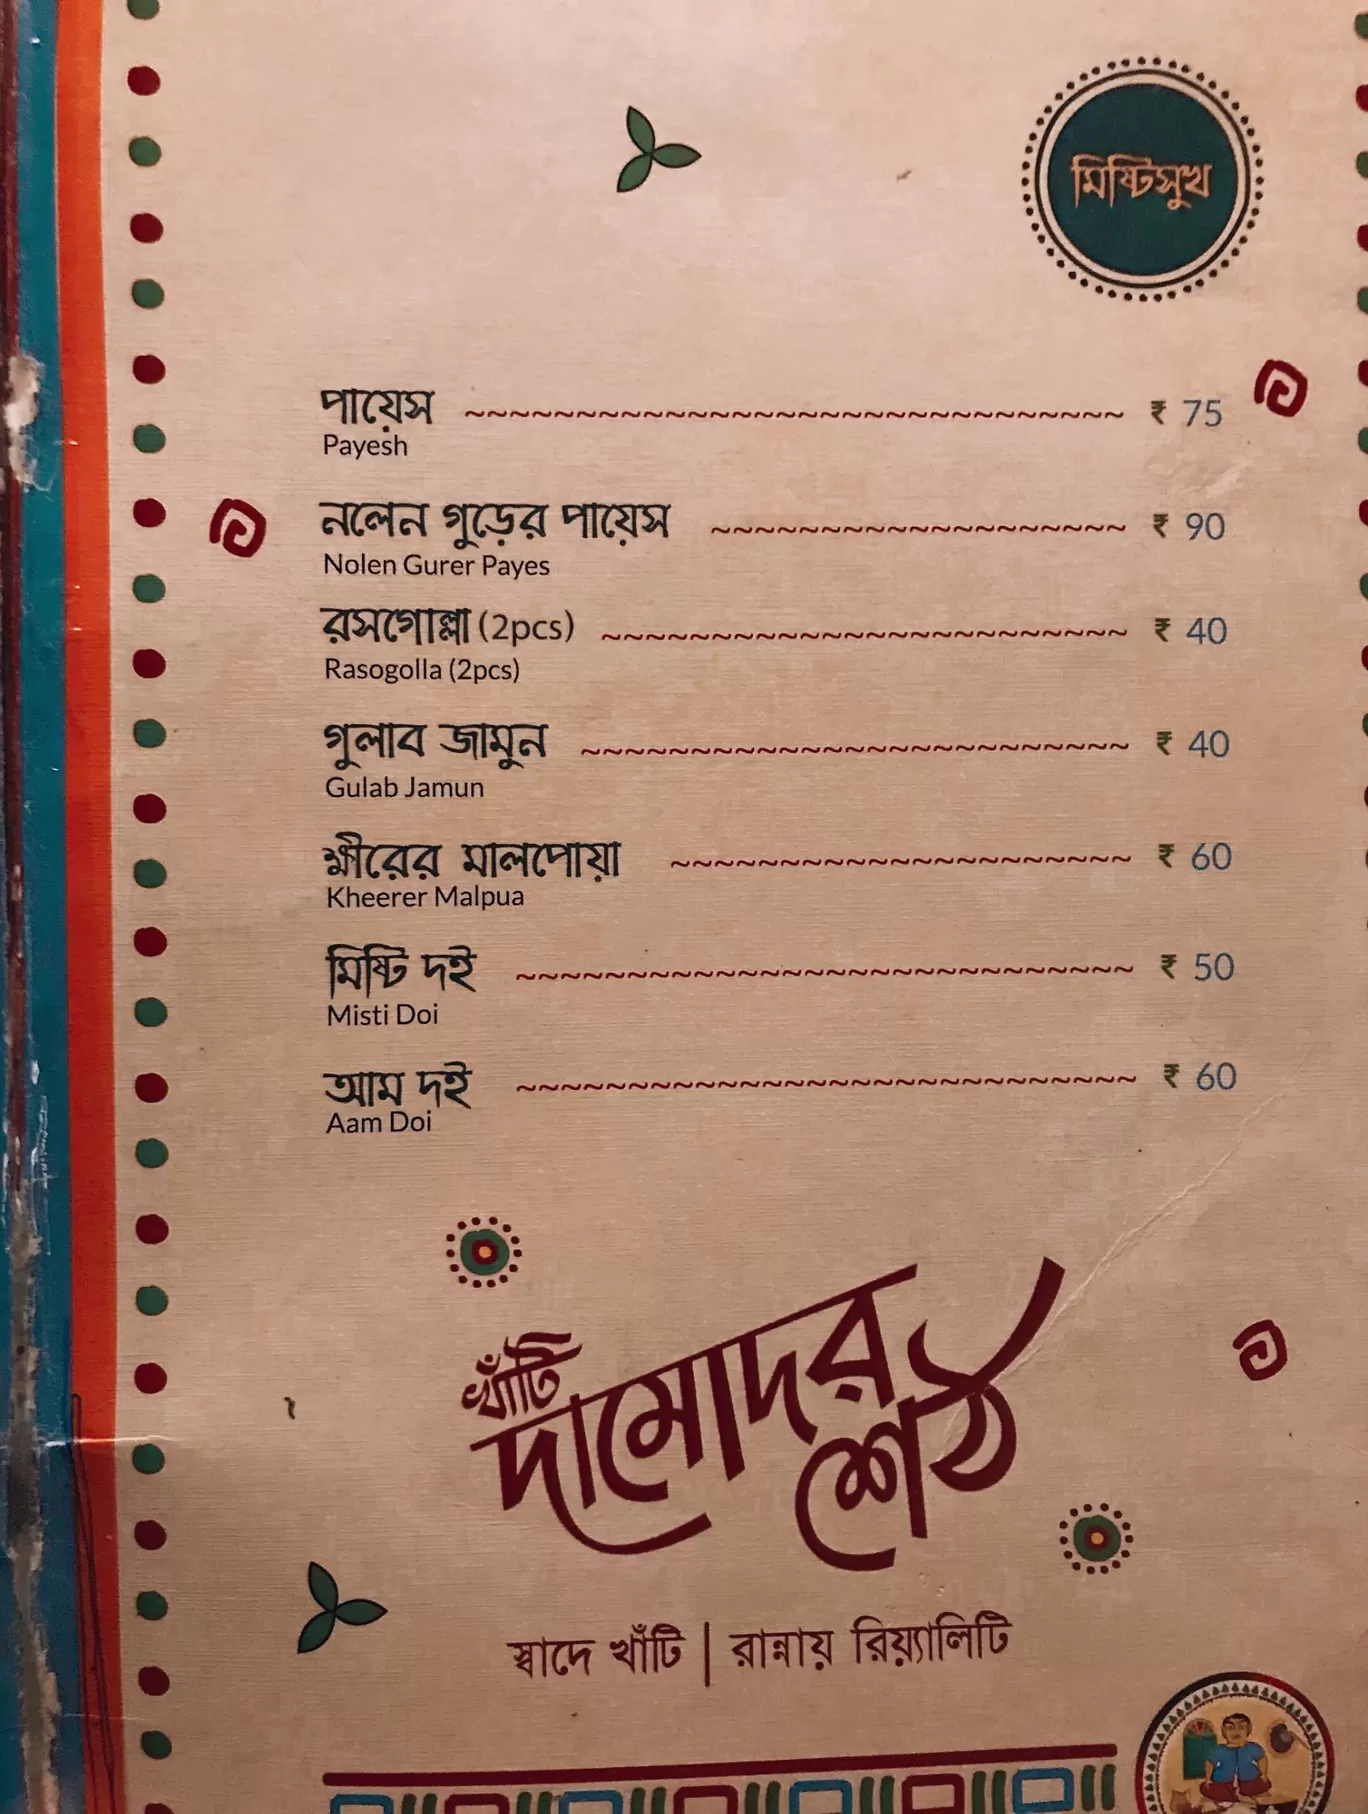 মিষ্টিসুখ
পায়েস ~~~~~~~~~~~~~~~~~~~~~~~~~~~~~~ ₹ 75
Payesh
নলেন গুড়ের পায়েস ~~~~~~~~~~~~~~~~~~~ ₹ 90
Nolen Gurer Payes
রসগোল্লা (2pcs) ~~~~~~~~~~~~~~~~~~~~~~~~ ₹ 40
Rasogolla (2pcs)
গুলাব জামুন ~~~~~~~~~~~~~~~~~~~~~~~~~ ₹ 40
Gulab Jamun
ক্ষীরের মালপোয়া ~~~~~~~~~~~~~~~~~~~~~ ₹ 60
Kheerer Malpua
মিষ্টি দই ~~~~~~~~~~~~~~~~~~~~~~~~~~~~ ₹ 50
Misti Doi
আম দই ~~~~~~~~~~~~~~~~~~~~~~~~~~~~ ₹ 60
Aam Doi
খাঁটি
দামোদর
শেঠ
স্বাদে খাঁটি | রান্নায় রিয়্যালিটি